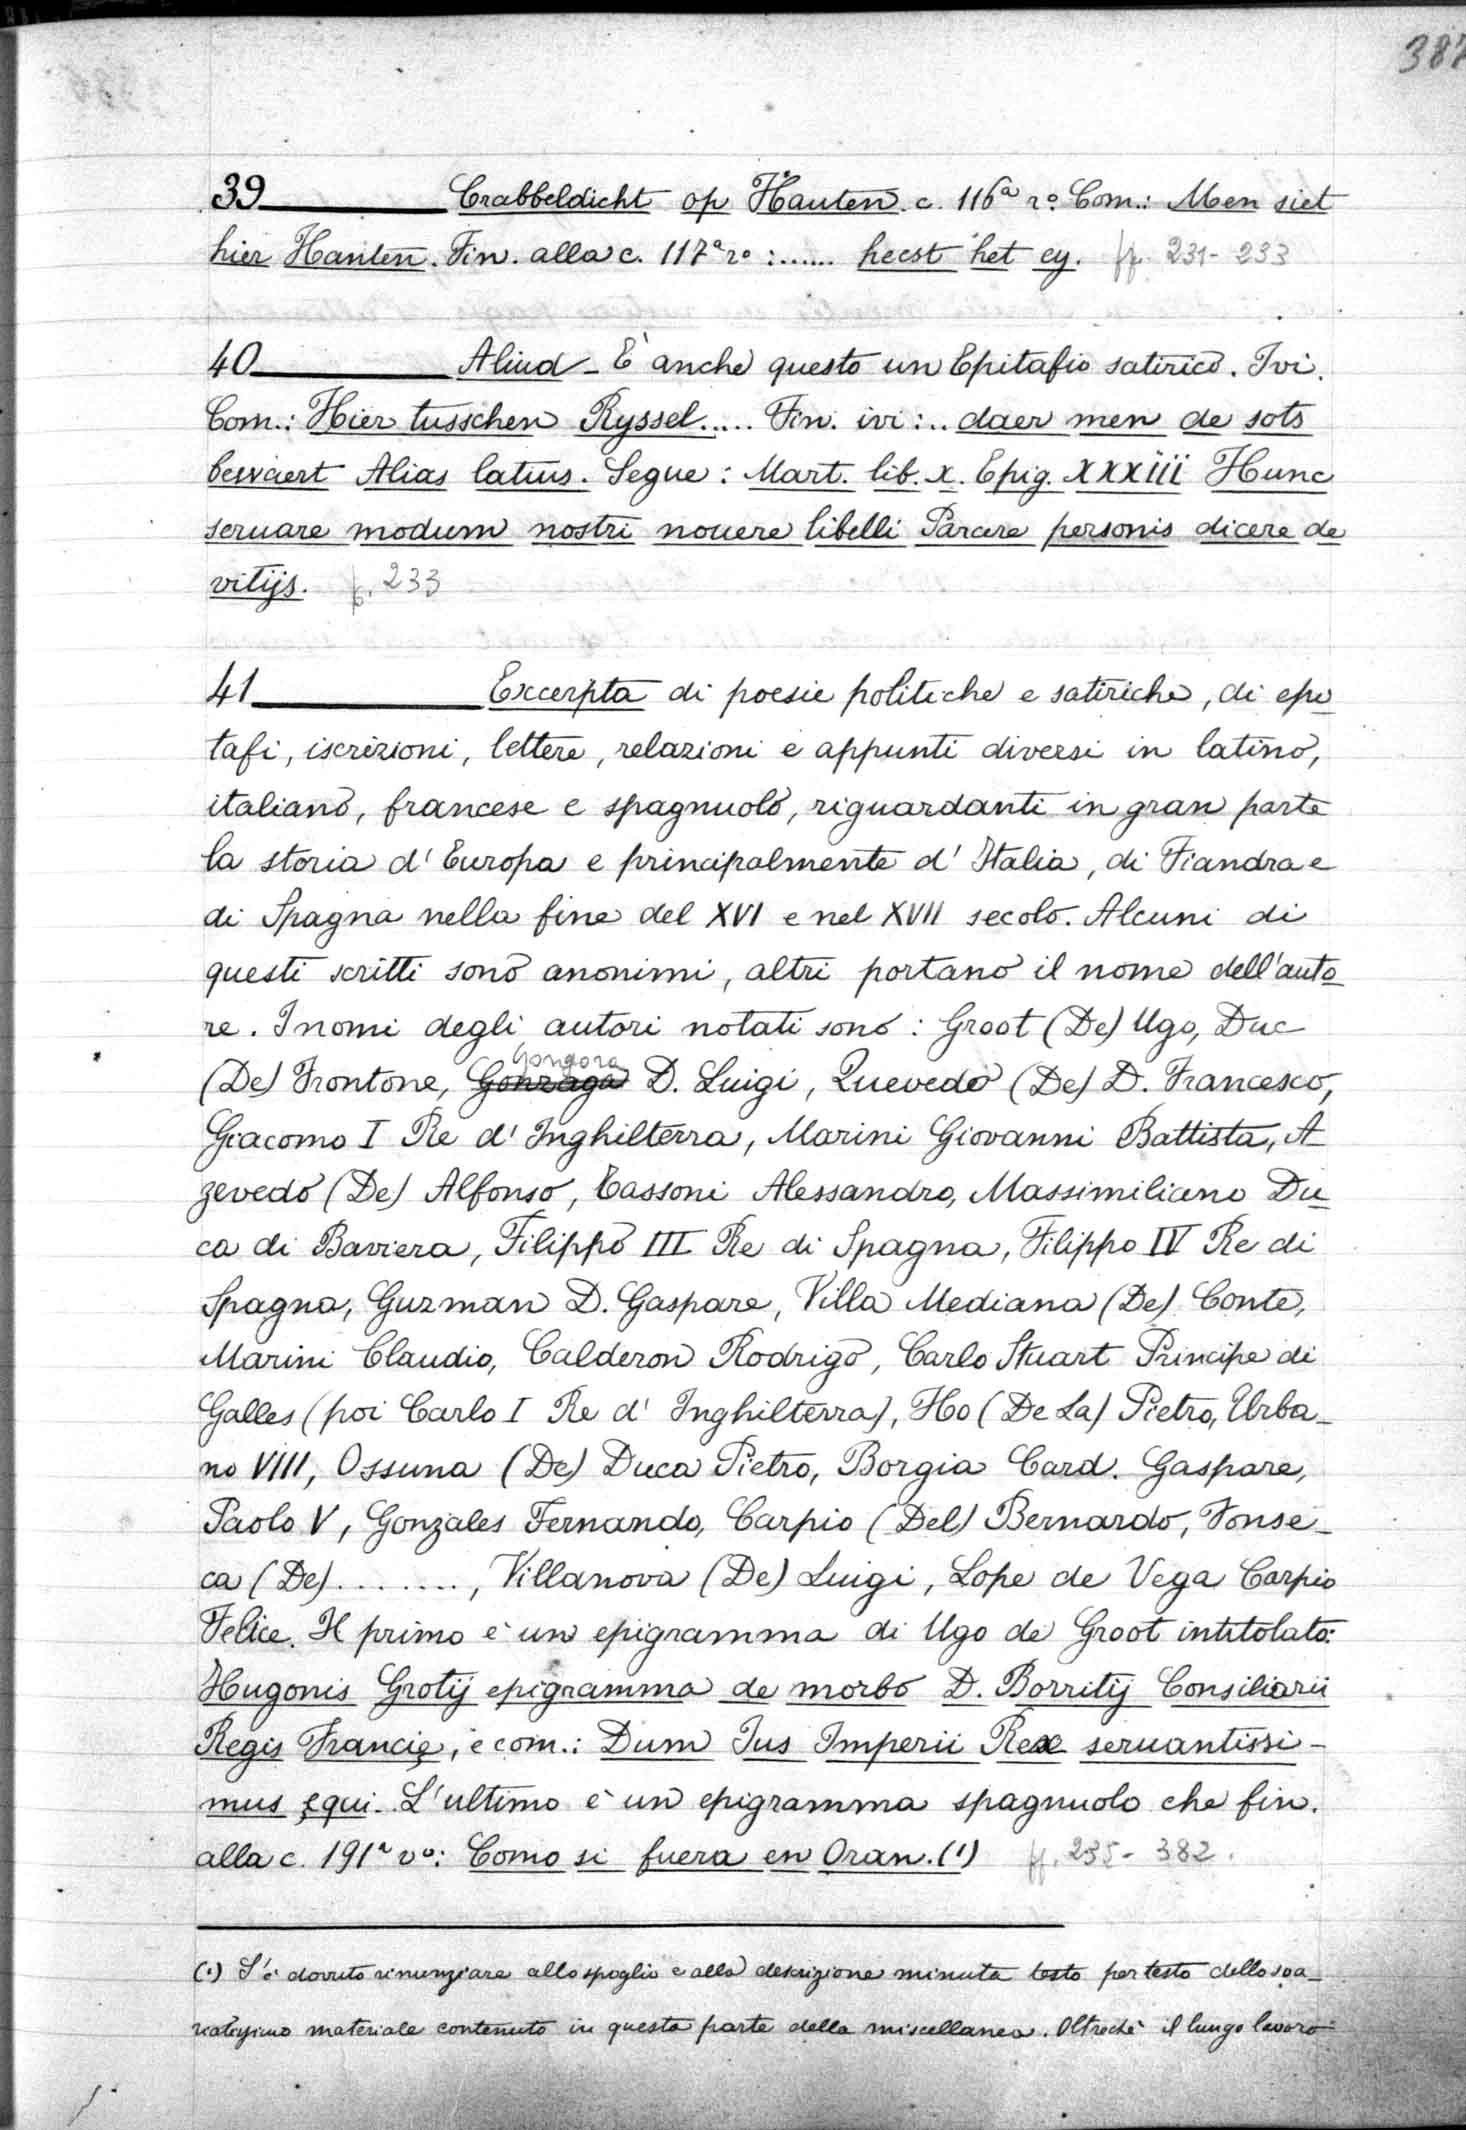 387
39 Crabbeldicht op Hauten. c. 116ª rº. Com.: Men siet
hier Hanten. Fin. alla c. 117ª rº: ...... heest het ey. ff. 231-233
40 Aliud - È anche questo un Epitafio satirico. Ivi.
Com.: Hier tusschen Ryssel..... Fin. ivi: .. daer men de sots
bewaert Alias latius. Segue: Mart. lib. X. Epig. XXXiii Hunc
seruare modum nostri nouere libelli Parcere personis dicere de
vitijs. f. 233
41 Excerpta di poesie politiche e satiriche, di epi
tafi, iscrizioni, lettere, relazioni e appunti diversi in latino,
italiano, francese e spagnuolo, riguardanti in gran parte
la storia d'Europa e principalmente d'Italia, di Fiandra e
di Spagna nella fine del XVI e nel XVII secolo. Alcuni di
questi scritti sono anonimi, altri portano il nome dell'auto
re. I nomi degli autori notati sono: Groot (De) Ugo, Duc
Gongora
(De) Frontone, Gonzaga D. Luigi, Quevedo (De) D. Francesco,
Giacomo I Re d'Inghilterra, Marini Giovanni Battista, A
zevedo (De) Alfonso, Tassoni Alessandro, Massimiliano Du
ca di Baviera, Filippo III Re di Spagna, Filippo IV Re di
Spagna, Guzman D. Gaspare, Villa Mediana (De) Conte,
Marini Claudio, Calderon Rodrigo, Carlo Stuart Principe di
Galles (poi Carlo I Re d'Inghilterra), Ho (De La) Pietro, Urba-
no VIII, Ossuna (De) Duca Pietro, Borgia Card. Gaspare,
Paolo V, Gonzales Fernando, Carpio (Del) Bernardo, Fonse-
ca (De) ........, Villanova (De) Luigi, Lope de Vega Carpio
Felice. Il primo è un epigramma di Ugo de Groot intitolato:
Hugonis Grotij epigramma de morbo D. Borritij Consiliarii
Regis Francię, e com.: Dum Jus Imperii Rex seruantissi-
mus ęqui. L'ultimo è un epigramma spagnuolo che fin.
alla c. 191ª vº: Como si fuera en Oran. (1) ff. 235-382.
(1) S'è dovuto rinunziare allo spoglio e alla descrizione minuta testo per testo dello sva-
riatissimo materiale contenuto in questa parte della miscellanea. Oltrechè il lungo lavoro